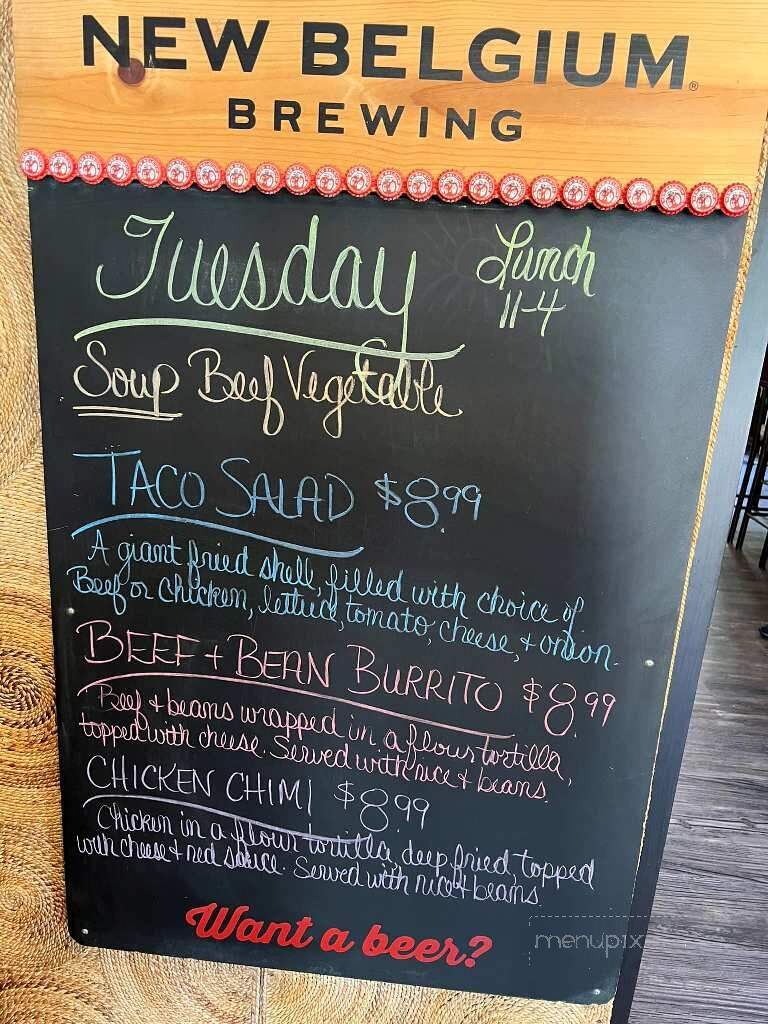 NEW BELGIUM®
BREWING
Tuesday
Lunch
11-4
Soup Beef Vegetable
TACO SALAD $8.99
A giant fried shell, filled with choice of
Beef or Chicken, lettuce, tomato, cheese, + onion.
BEEF + BEAN BURRITO $8.99
Beef + beans wrapped in a flour tortilla,
topped with cheese. Served with rice + beans.
CHICKEN CHIMI $8.99
Chicken in a flour tortilla, deep fried, topped
with cheese + red sauce. Served with rice + beans.
Want a beer?
menupix